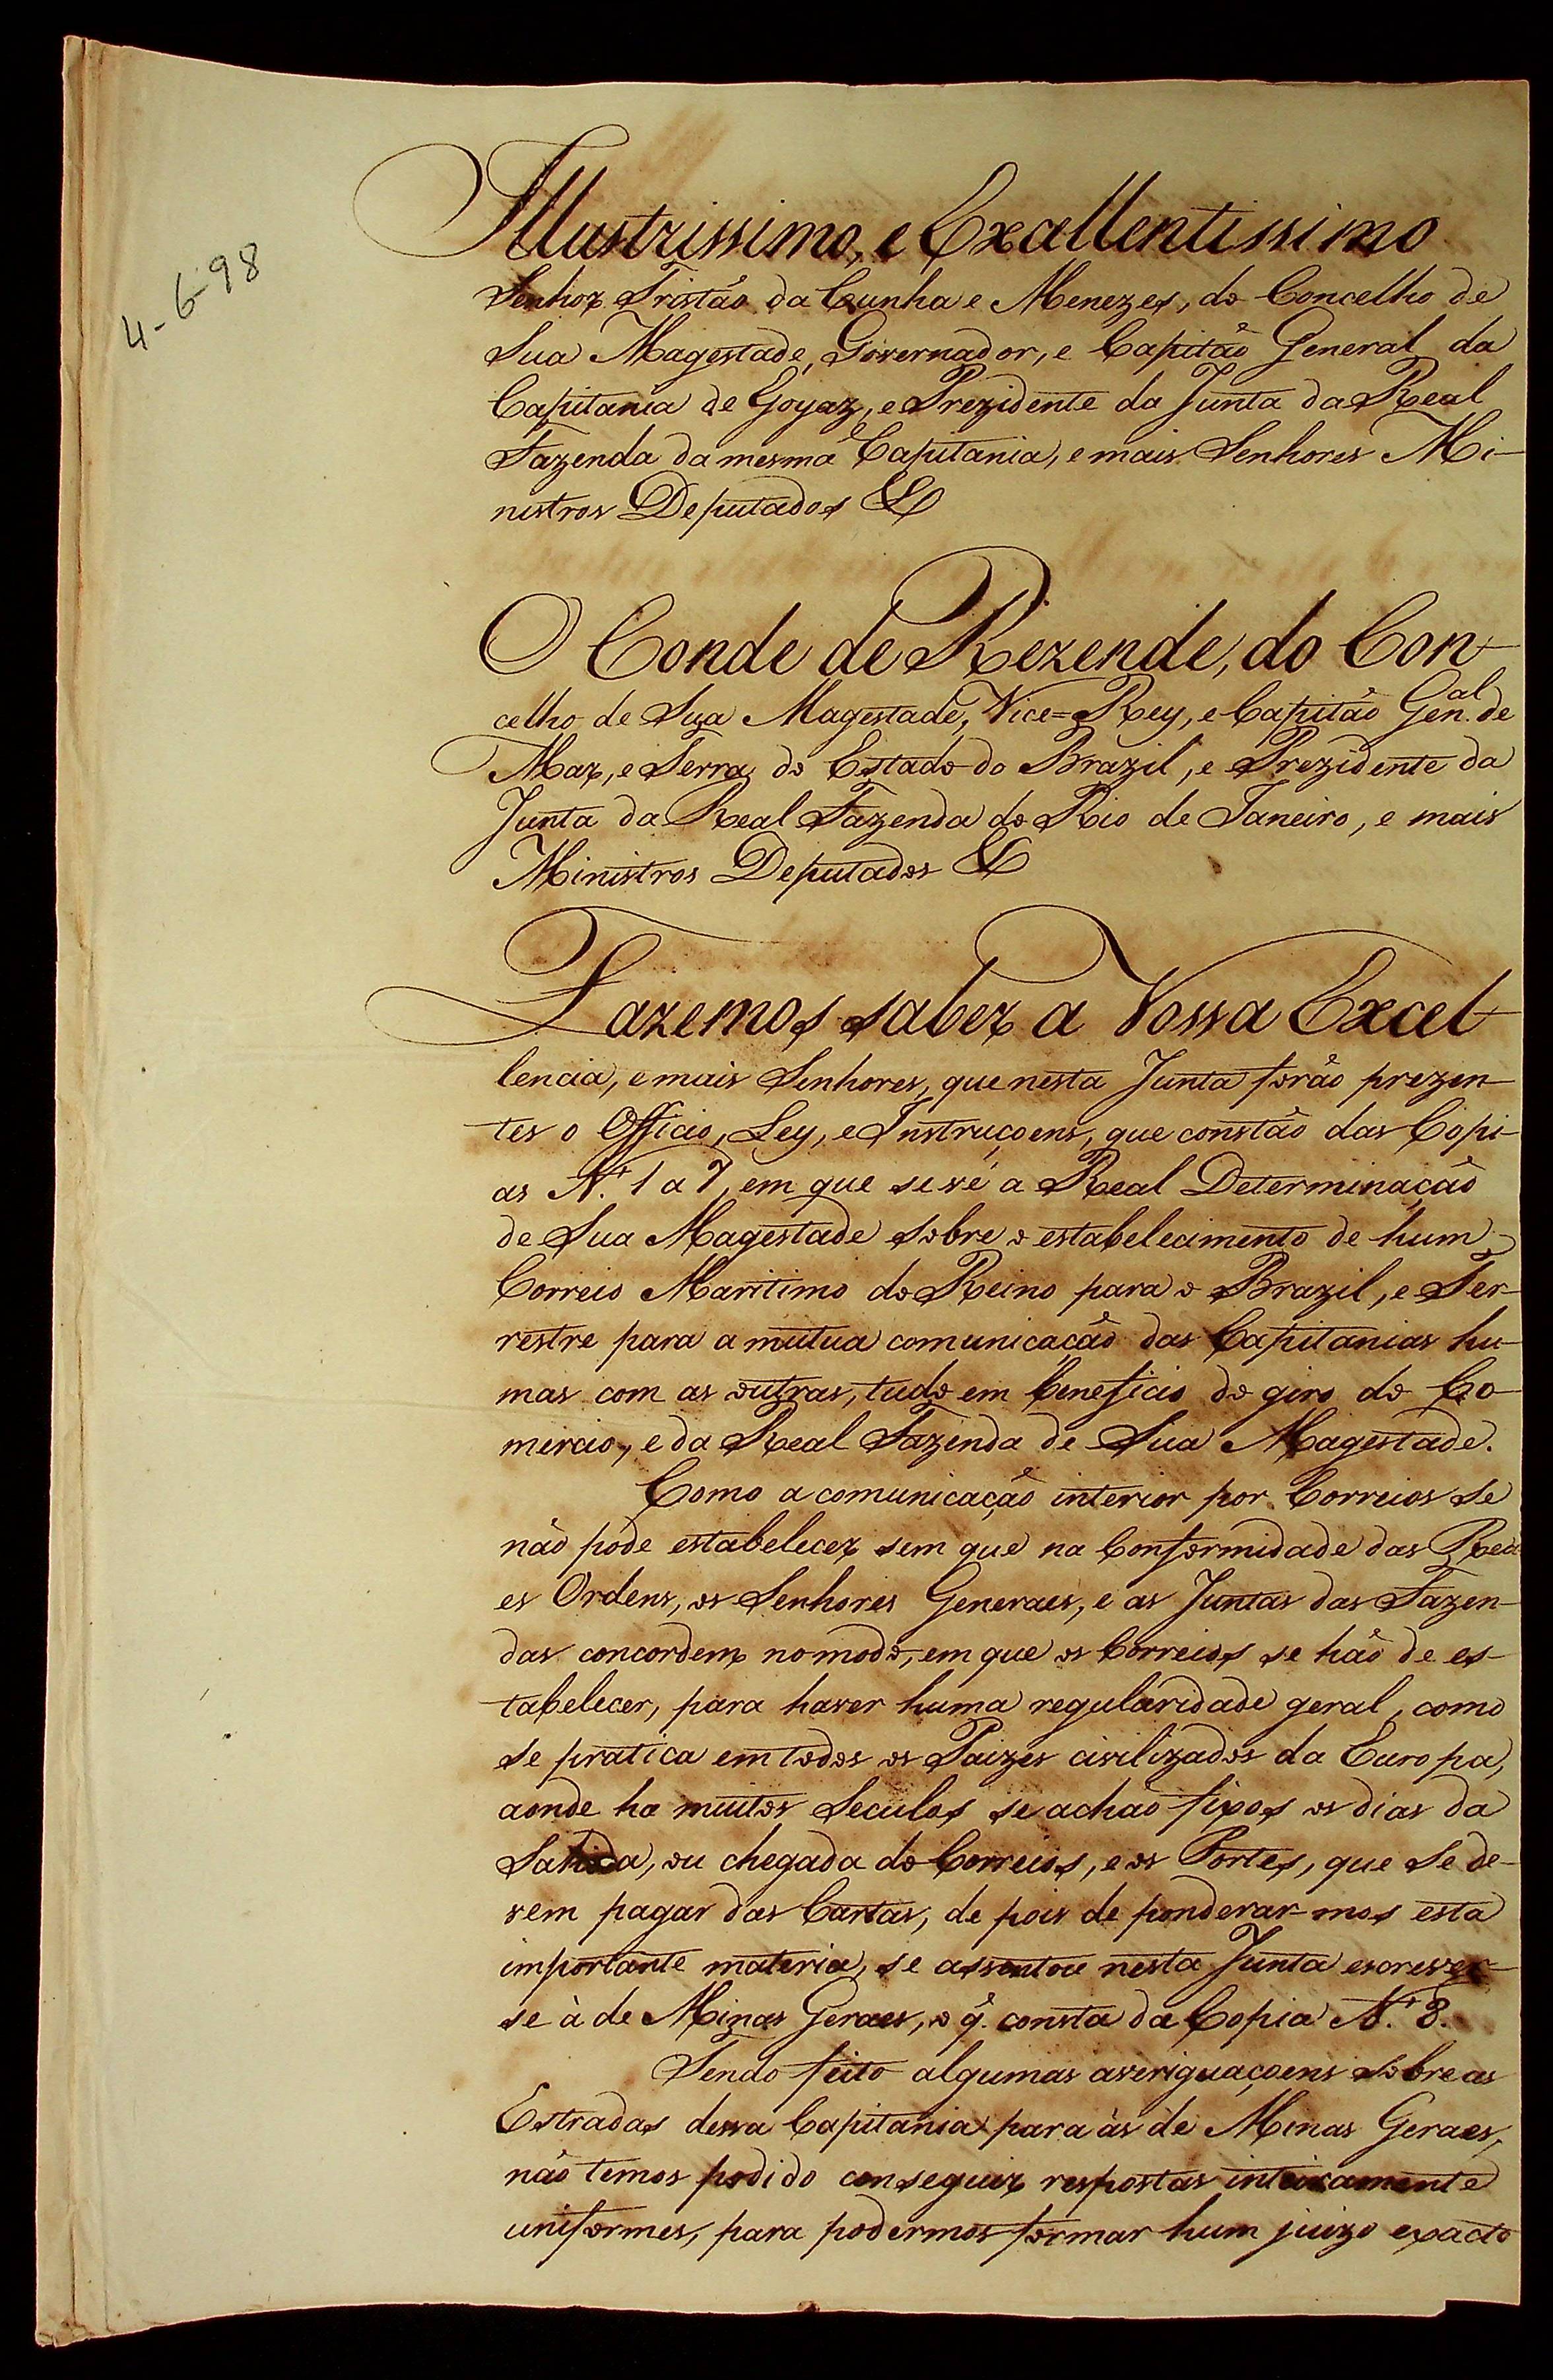 4-6-98
Illustrissimo, e Excellentissimo
Senhor Tristão da Cunha e Menezes, do Concelho de
Sua Magestade, Governador, e Capitão General da
Capitania de Goyaz, e Prezidente da Junta da Real
Fazenda da mesma Capitania, e mais Senhores Mi-
nistros Deputados &
O Conde de Rezende, do Con-
celho de Sua Magestade, Vice=Rey, e Capitão Gen.al de
Mar, e Terra do Estado do Brazil, e Prezidente da
Junta da Real Fazenda do Rio de Janeiro, e mais
Ministros Deputados &
Fazemos saber a Vossa Excel-
lencia, e mais Senhores, que nesta Junta forão prezen-
tes o Officio, Ley, e Instruçoens, que constão das Copi-
as N.º 1 a 7, em que se vé a Real Determinação
de Sua Magestade sobre o estabelecimento de hum
Correio Maritimo do Reino para o Brazil, e Ter-
restre para a mutua comunicação das Capitanias hu-
mas com as outras, tudo em beneficio do giro do Co-
mercio, e da Real Fazenda de Sua Magestade.
Como a comunicação interior por Correios se
não pode estabelecer sem que na Conformidade das Rea-
es Ordens, os Senhores Generaes, e as Juntas das Fazen-
das concordem no modo, em que os Correios se hão de es-
tabelecer, para haver huma regularidade geral, como
se pratica em todos os Paizes civilizados da Europa,
aonde ha muitos Seculos se achão fixos os dias da
Sahida, ou chegada do Correios, e os Portes, que se de-
vem pagar das Cartas, de pois de ponderar-mos esta
importante materia, se assentou nesta Junta escrever-
se à de Minas Geraes, o q̃. consta da Copia N.º 8.
Tendo feito algumas averiguaçoens sobre as
Estradas dessa Capitania para às de Minas Geraes,
não temos podido conseguir respostas inteiramente
uniformes, para podermos formar hum juizo exacto